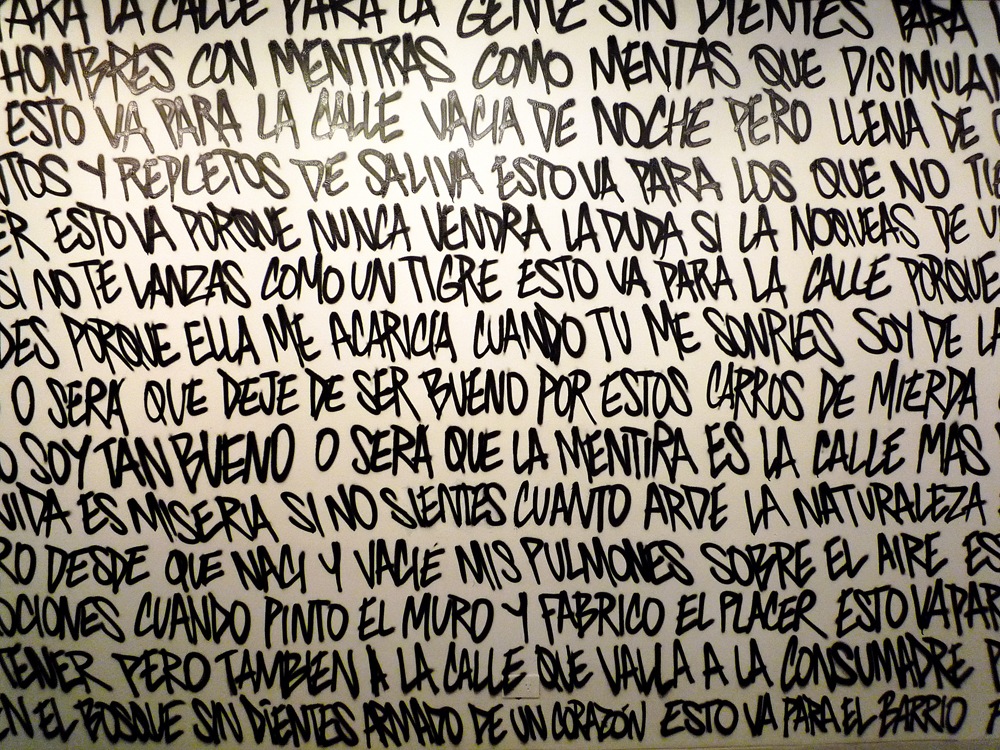 PARA LA CALLE PARA LA GENTE SIN DIENTES PARA
HOMBRES CON MENTIRAS COMO MENTAS QUE DISIMULAN
ESTO VA PARA LA CALLE VACIA DE NOCHE PERO LLENA DE
TOS Y REPLETOS DE SALIVA ESTO VA PARA LOS QUE NO
ER ESTO VA PORQUE NUNCA VENDRA LA DUDA SI LA NOQUEAS DE
SI NO TE LANZAS COMO UN TIGRE ESTO VA PARA LA CALLE PORQUE
DES PORQUE ELLA ME ACARICIA CUANDO TU ME SONRIES SOY DE LA
O SERA QUE DEJE DE SER BUENO POR ESTOS CARROS DE MIERDA
O SOY TAN BUENO O SERA QUE LA MENTIRA ES LA CALLE MAS
VIDA ES MISERIA SI NO SIENTES CUANTO ARDE LA NATURALEZA
RO DESDE QUE NACI Y VACIÉ MIS PULMONES SOBRE EL AIRE ES
OCIONES CUANDO PINTO EL MURO Y FABRICO EL PLACER ESTO VA PAR
TENER PERO TAMBIEN A LA CALLE QUE VALLA A LA CONSUMADRE
EN EL BOSQUE SIN DIENTES ARMADO DE UN CORAZÓN ESTO VA PARA EL BARRIO